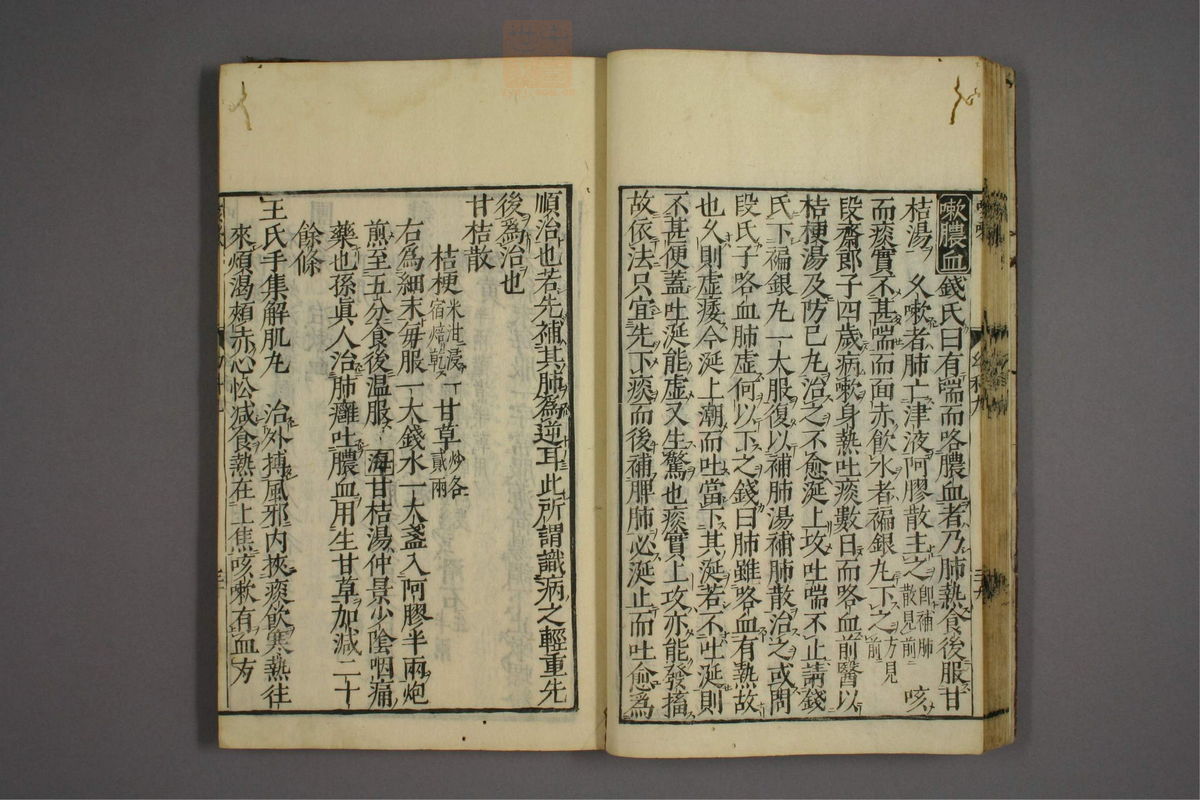 嗽膿血 錢氏曰有喘而咯膿血者乃肺熱食後服甘
桔湯 久嗽者肺亡津液阿膠散主之卽補肺散見前 咳
而痰實不甚喘而面赤飲水者褊銀丸下之方見前
段齋郎子四歲病嗽身熱吐痰數日而咯血前醫以
桔梗湯及防己丸治之不愈涎上攻吐喘不止請錢
氏下褊銀丸一大服復以補肺湯補肺散治之或問
段氏子咯血肺虛何以下之錢曰肺雖咯血有熱故
也久則虛痿今涎上潮而吐當下其涎若不吐涎則
不甚便蓋吐涎能虛又生驚也痰實上攻亦能發搐
故依法只宜先下痰而後補脾肺必涎止而吐愈爲
順治也若先補其肺為逆耳此所謂識病之輕重先
後爲治也
甘桔散
桔梗米泔浸一宿焙乾 甘草炒各貳兩
右為細末每服一大錢水一大盞入阿膠半兩炮
煎至五分食後温服 海甘桔湯仲景少陰咽痛
藥也孫眞人治肺癰吐膿血用生甘草加減二十
餘條
王氏手集解肌丸 治外搏風邪内挾痰飲寒熱往
來煩渴頰赤心忪减食熱在上焦咳嗽有血方